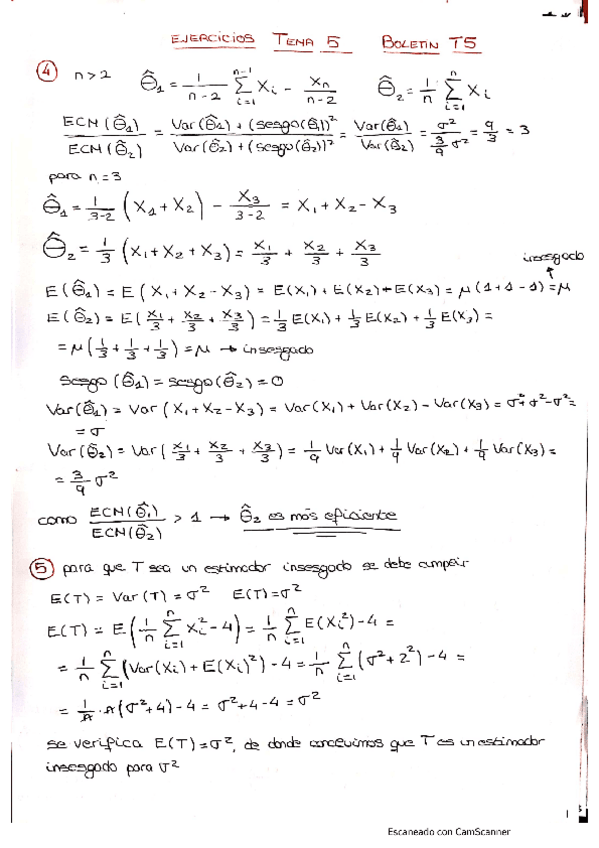 EJERCICIOS TEMA 5 BOLETIN T5
④ n>2 θ̂₁ = 1/(n-2) Σ_{i=1}^{n-1} Xi - Xn/(n-2) θ̂₂ = 1/n Σ_{i=1}^{n} Xi
ECM(θ̂₁)/ECM(θ̂₂) = (Var(θ̂₁) + (sesgo(θ̂₁))²)/(Var(θ̂₂) + (sesgo(θ̂₂))²) = Var(θ̂₁)/Var(θ̂₂) = σ²/(3/9 σ²) = 9/3 = 3
para n=3
θ̂₁ = 1/(3-2) (X1 + X2) - X3/(3-2) = X1 + X2 - X3
θ̂₂ = 1/3 (X1 + X2 + X3) = X1/3 + X2/3 + X3/3
insesgado
E(θ̂₁) = E(X1 + X2 - X3) = E(X1) + E(X2) - E(X3) = μ(1+1-1) = μ
E(θ̂₂) = E(X1/3 + X2/3 + X3/3) = 1/3 E(X1) + 1/3 E(X2) + 1/3 E(X3) =
= μ(1/3 + 1/3 + 1/3) = μ → insesgado
Sesgo (θ̂₁) = sesgo(θ̂₂) = 0
Var(θ̂₁) = Var (X1 + X2 - X3) = Var(X1) + Var(X2) - Var(X3) = σ² + σ² - σ² =
= σ
Var(θ̂₂) = Var(X1/3 + X2/3 + X3/3) = 1/9 Var(X1) + 1/9 Var(X2) + 1/9 Var(X3) =
= 3/9 σ²
como ECM(θ̂₁)/ECM(θ̂₂) > 1 → θ̂₂ es más eficiente
⑤ para que T sea un estimador insesgado se debe cumplir
E(T) = Var(T) = σ² E(T) = σ²
E(T) = E(1/n Σ_{i=1}^{n} Xi² - 4) = 1/n Σ_{i=1}^{n} E(Xi²) - 4 =
= 1/n Σ_{i=1}^{n} (Var(Xi) + E(Xi)²) - 4 = 1/n Σ_{i=1}^{n} (σ² + 2²) - 4 =
= 1/n · n(σ² + 4) - 4 = σ² + 4 - 4 = σ²
se verifica E(T) = σ², de donde concluimos que T es un estimador
insesgado para σ²
1
Escaneado con CamScanner